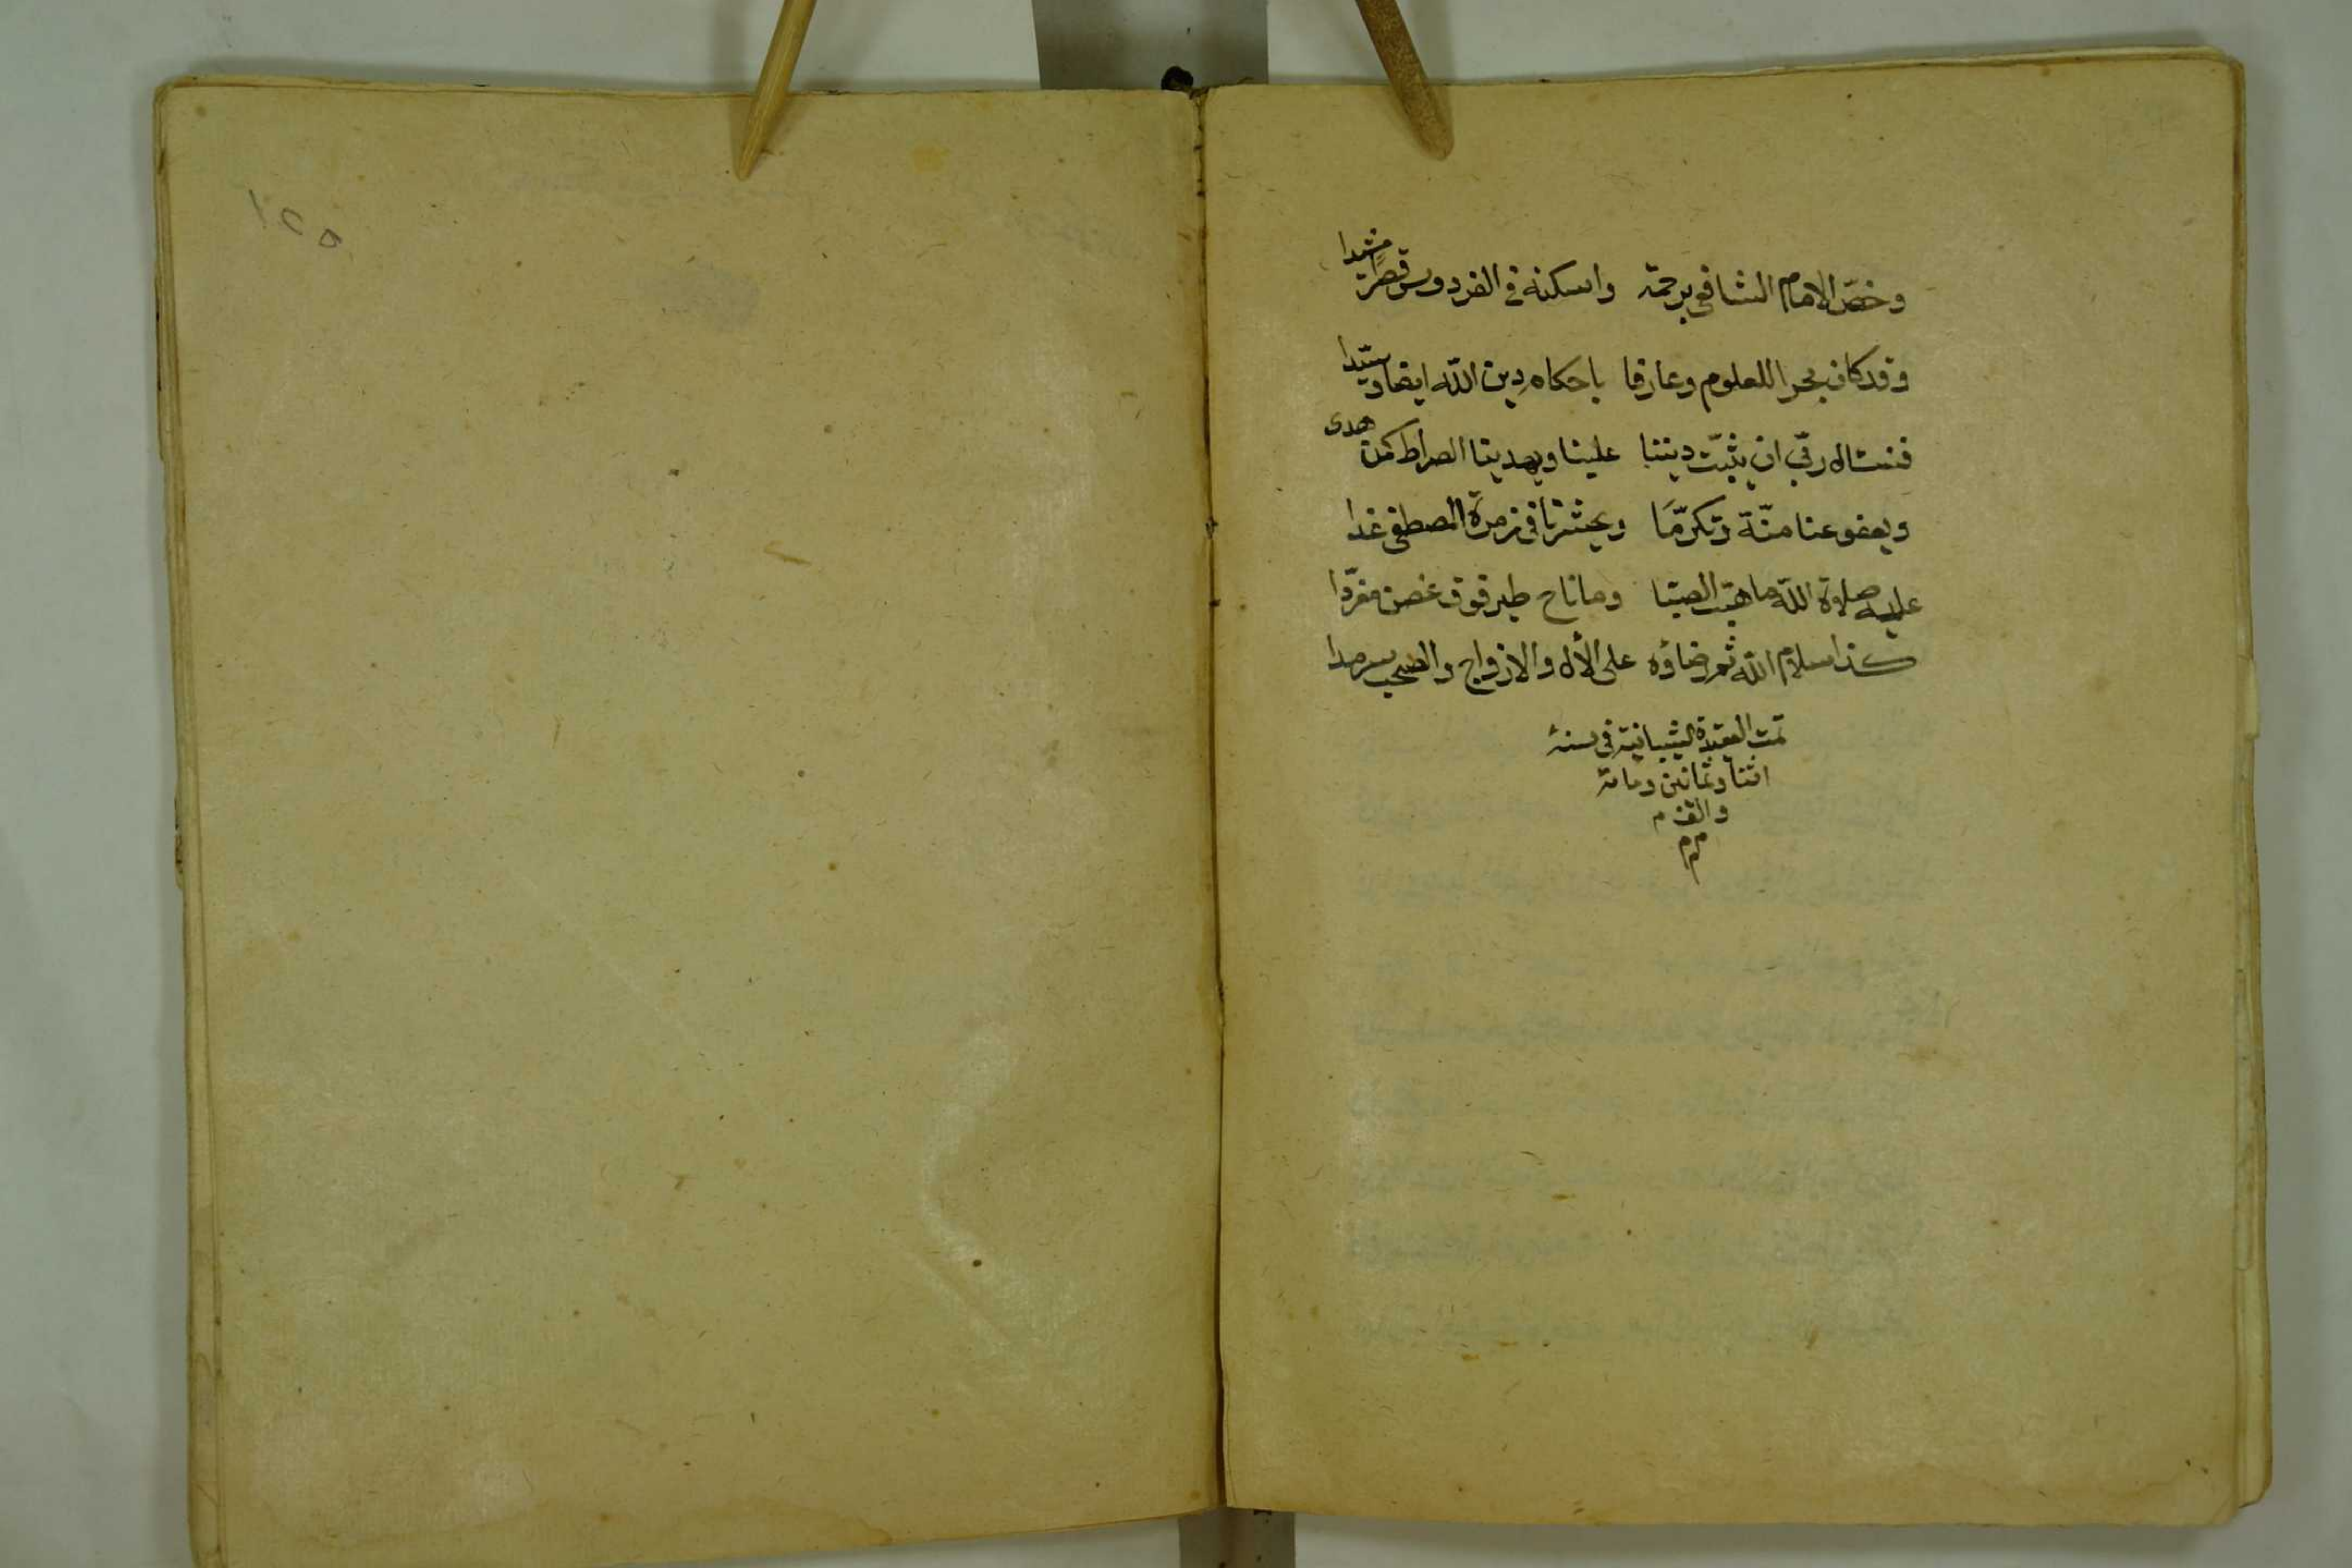 وخصّ الامام الشافعى برحمة واسكنه فى الفردوس قصرًا مشيدا
وقد كان بحرا للعلوم وعارفا باحكام دين الله ايضا وسيّدا
فنسئال ربّى ان يثبّت ديننا علينا ويهدينا الصراط كمن هدى
ويعفو عنا منّة وتكرّمًا ويحشرنا فى زمرة المصطفى غدا
عليه صلاة الله ما هبّت الصبّا وما ناح طير فوق غصن مغرّدا
كذا سلام الله ثم رضاؤه على الأل والازواج والصحب سرمدا
تمت العقيدة الشيبانية فى سنة
اثنا وثمانين ومائة
والف م
م م م
١٢٥